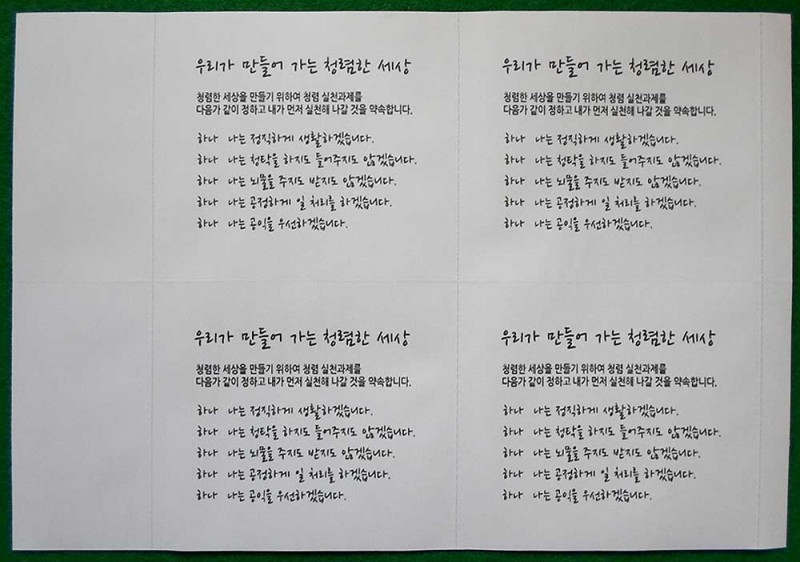 우리가 만들어 가는 청렴한 세상
청렴한 세상을 만들기 위하여 청렴 실천과제를
다음과 같이 정하고 내가 먼저 실천해 나갈 것을 약속합니다.
하나 나는 정직하게 생활하겠습니다.
하나 나는 청탁을 하지도 들어주지도 않겠습니다.
하나 나는 뇌물을 주지도 받지도 않겠습니다.
하나 나는 공정하게 일 처리를 하겠습니다.
하나 나는 공익을 우선하겠습니다.
우리가 만들어 가는 청렴한 세상
청렴한 세상을 만들기 위하여 청렴 실천과제를
다음과 같이 정하고 내가 먼저 실천해 나갈 것을 약속합니다.
하나 나는 정직하게 생활하겠습니다.
하나 나는 청탁을 하지도 들어주지도 않겠습니다.
하나 나는 뇌물을 주지도 받지도 않겠습니다.
하나 나는 공정하게 일 처리를 하겠습니다.
하나 나는 공익을 우선하겠습니다.
우리가 만들어 가는 청렴한 세상
청렴한 세상을 만들기 위하여 청렴 실천과제를
다음과 같이 정하고 내가 먼저 실천해 나갈 것을 약속합니다.
하나 나는 정직하게 생활하겠습니다.
하나 나는 청탁을 하지도 들어주지도 않겠습니다.
하나 나는 뇌물을 주지도 받지도 않겠습니다.
하나 나는 공정하게 일 처리를 하겠습니다.
하나 나는 공익을 우선하겠습니다.
우리가 만들어 가는 청렴한 세상
청렴한 세상을 만들기 위하여 청렴 실천과제를
다음과 같이 정하고 내가 먼저 실천해 나갈 것을 약속합니다.
하나 나는 정직하게 생활하겠습니다.
하나 나는 청탁을 하지도 들어주지도 않겠습니다.
하나 나는 뇌물을 주지도 받지도 않겠습니다.
하나 나는 공정하게 일 처리를 하겠습니다.
하나 나는 공익을 우선하겠습니다.